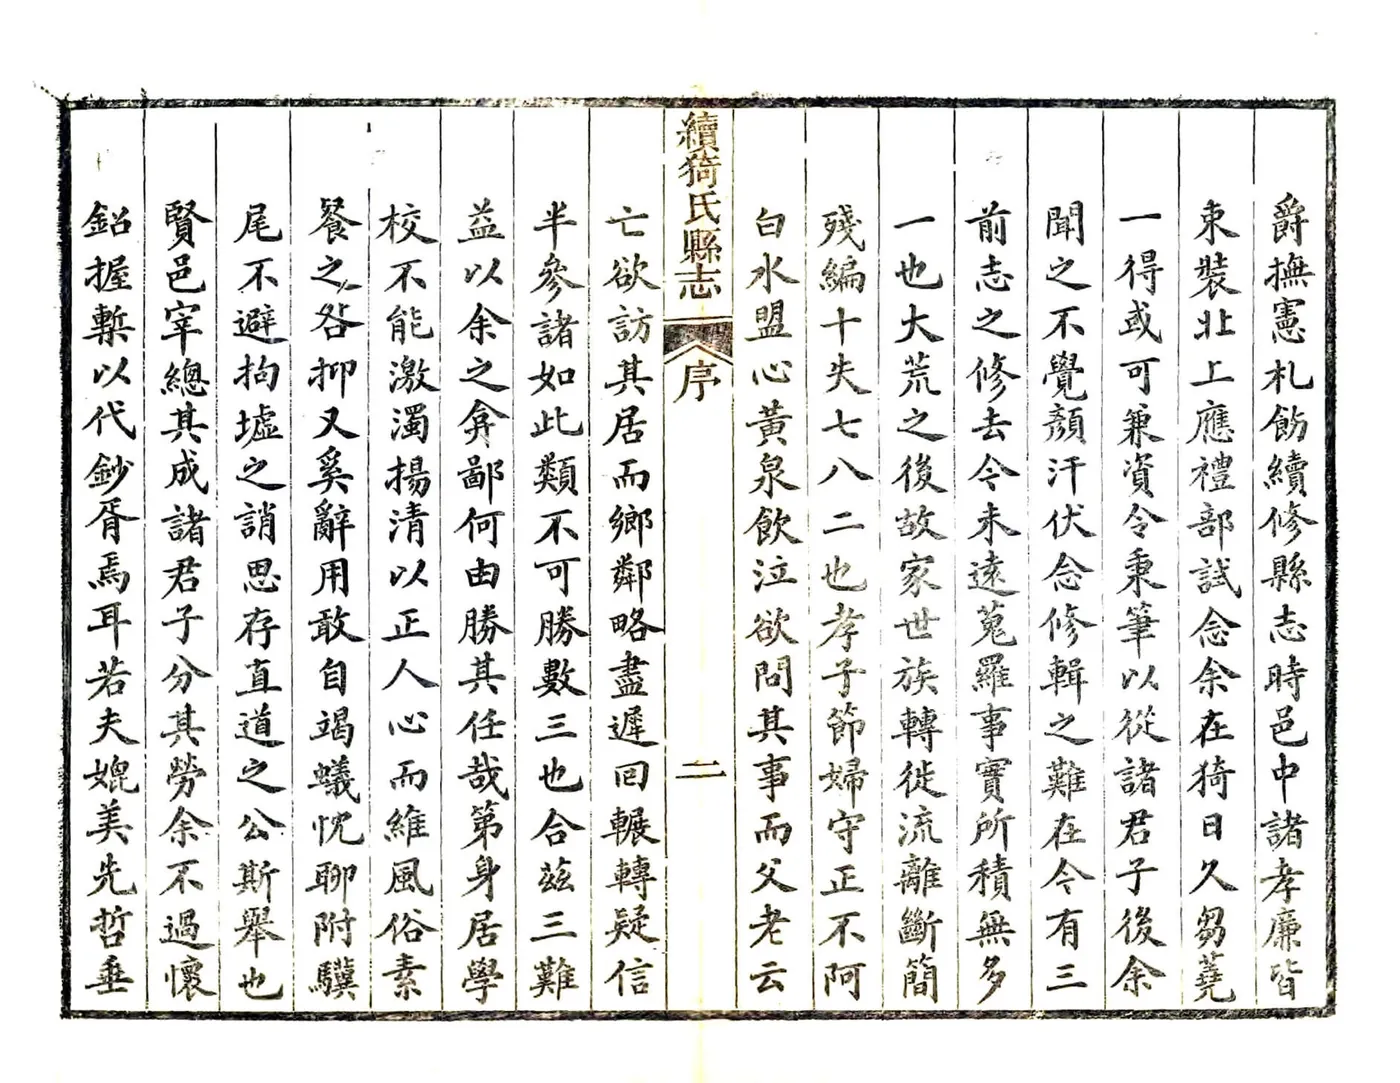 爵撫憲札飭續修縣志時邑中諸孝廉皆
束裝北上應禮部試念余在猗日久芻蕘
一得或可兼資令秉筆以從諸君子後余
聞之不覺顏汗伏念修輯之難在今有三
前志之修去今未遠蒐羅事實所積無多
一也大荒之後故家世族轉徙流離斷簡
殘編十失七八二也孝子節婦守正不阿
白水盟心黃泉飲泣欲問其事而父老云
續猗氏縣志
序
二
亡欲訪其居而鄉鄰略盡遲回輾轉疑信
半參諸如此類不可勝數三也合茲三難
益以余之弇鄙何由勝其任哉第身居學
校不能激濁揚清以正人心而維風俗素
餐之咎抑又奚辭用敢自竭蟻忱聊附驥
尾不避拘墟之誚思存直道之公斯舉也
賢邑宰總其成諸君子分其勞余不過懷
鉛握槧以代鈔胥焉耳若夫媲美先哲垂